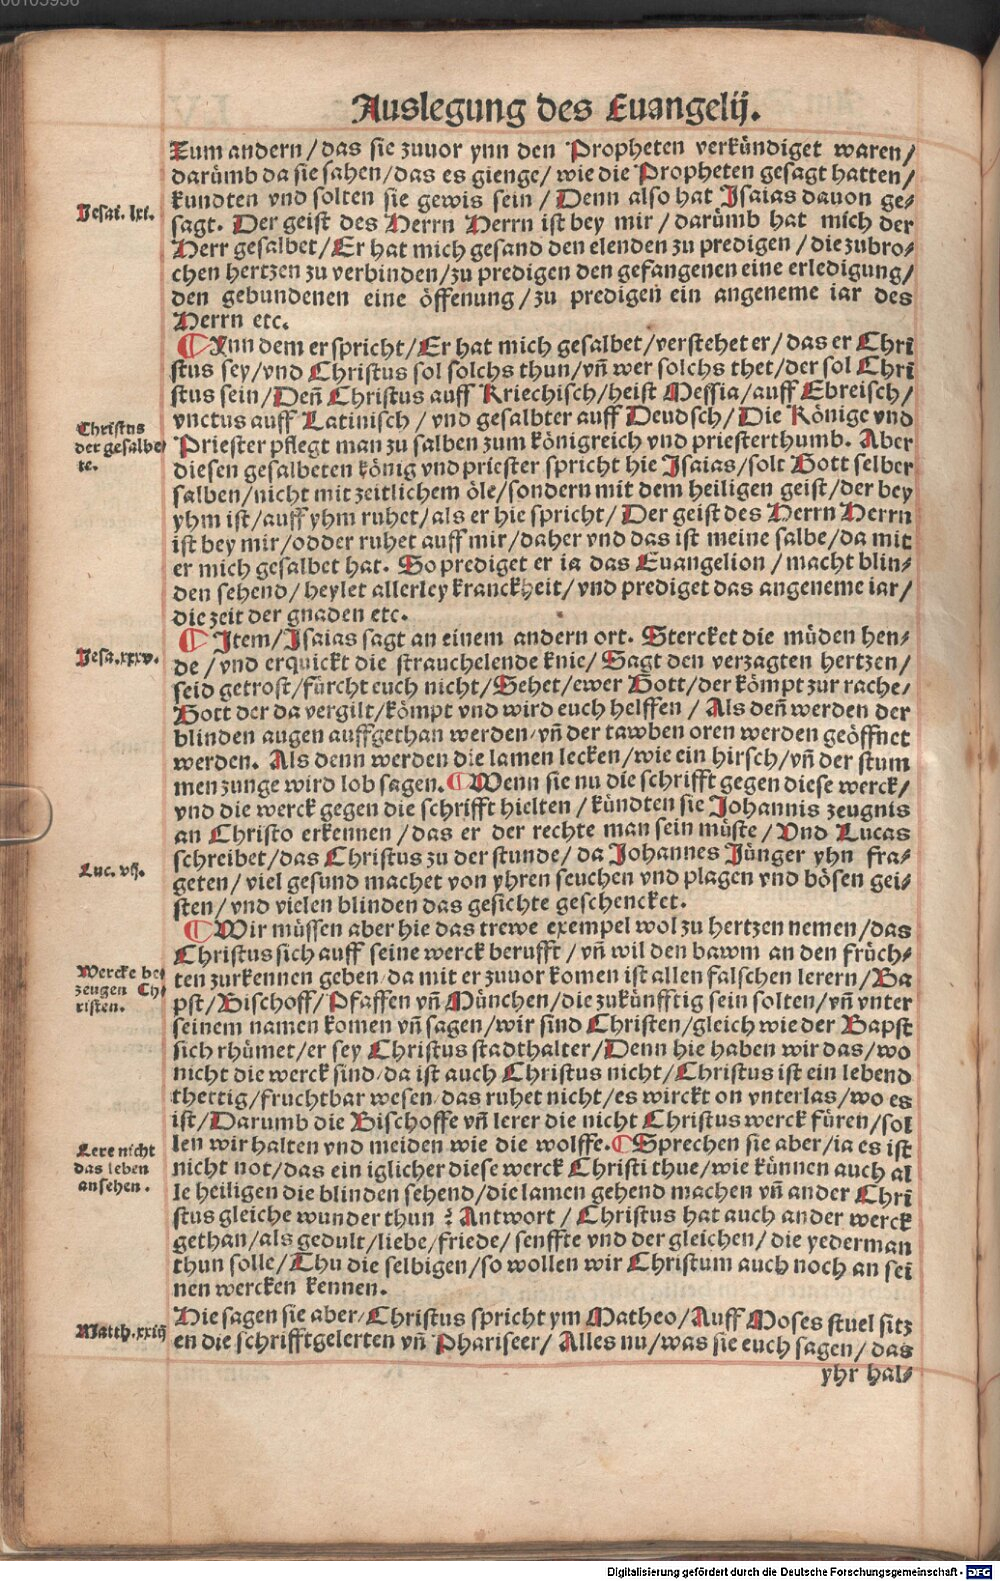 Auslegung des Euangelij.
Zum andern / das sie zuuor ynn den Propheten verkündiget waren /
darümb da sie sahen / das es gienge / wie die Propheten gesagt hatten /
kundten vnd solten sie gewis sein / Denn also hat Isaias dauon ge⸗
Jesai. lxi.
sagt. Der geist des Herrn Herrn ist bey mir / darümb hat mich der
Herr gesalbet / Er hat mich gesand den elenden zu predigen / die zubro⸗
chen hertzen zu verbinden / zu predigen den gefangenen eine erledigung /
den gebundenen eine öffenung / zu predigen ein angeneme iar des
Herrn etc.
¶ Ynn dem er spricht / Er hat mich gesalbet / verstehet er / das er Chri
stus sey / vnd Christus sol solchs thun / vn̄ wer solchs thet / der sol Chri
stus sein / Den̄ Christus auff Kriechisch / heist Messia / auff Ebreisch /
vnctus auff Latinisch / vnd gesalbter auff Deudsch / Die Könige vnd
Christus
der gesalbe⸗
te.
Priester pflegt man zu salben zum königreich vnd priesterthumb. Aber
diesen gesalbeten könig vnd priester spricht hie Isaias / solt Gott selber
salben / nicht mit zeitlichem öle / sondern mit dem heiligen geist / der bey
yhm ist / auff yhm ruhet / als er hie spricht / Der geist des Herrn Herrn
ist bey mir / odder ruhet auff mir / daher vnd das ist meine salbe / da mit
er mich gesalbet hat. So prediget er ia das Euangelion / macht blin⸗
den sehend / heylet allerley kranckheit / vnd prediget das angeneme iar /
die zeit der gnaden etc.
¶ Item / Isaias sagt an einem andern ort. Stercket die müden hen⸗
Jesa. xxxv.
de / vnd erquickt die strauchelende knie / Sagt den verzagten hertzen /
seid getrost / fürcht euch nicht / Sehet / ewer Gott / der kömpt zur rache /
Gott der da vergilt / kömpt vnd wird euch helffen / Als den̄ werden der
blinden augen auffgethan werden / vn̄ der tawben oren werden geöffnet
werden. Als denn werden die lamen lecken / wie ein hirsch / vn̄ der stum
men zunge wird lob sagen. ¶ Wenn sie nu die schrifft gegen diese werck /
vnd die werck gegen die schrifft hielten / kündten sie Johannis zeugnis
an Christo erkennen / das er der rechte man sein müste / Vnd Lucas
Luc. vij.
schreibet / das Christus zu der stunde / da Johannes Jünger yhn fra⸗
geten / viel gesund machet von yhren seuchen vnd plagen vnd bösen gei⸗
sten / vnd vielen blinden das gesichte geschencket.
¶ Wir müssen aber hie das trewe exempel wol zu hertzen nemen / das
Christus sich auff seine werck berufft / vn̄ wil den bawm an den früch⸗
Wercke be⸗
zeugen Ch⸗
risten.
ten zurkennen geben / da mit er zuuor komen ist allen falschen lerern / Ba
pst / Bischoff / Pfaffen vn̄ München / die zukünfftig sein solten / vn̄ vnter
seinem namen komen vn̄ sagen / wir sind Christen / gleich wie der Bapst
sich rhümet / er sey Christus stadthalter / Denn hie haben wir das / wo
nicht die werck sind / da ist auch Christus nicht / Christus ist ein lebend
thettig / fruchtbar wesen / das ruhet nicht / es wirckt on vnterlas / wo es
ist / Darumb die Bischoffe vn̄ lerer die nicht Christus werck füren / sol
len wir halten vnd meiden wie die wolffe. ¶ Sprechen sie aber / ia es ist
Lere nicht
das leben
ansehen.
nicht not / das ein iglicher diese werck Christi thue / wie künnen auch al
le heiligen die blinden sehend / die lamen gehend machen vn̄ ander Chri
stus gleiche wunder thun ? Antwort / Christus hat auch ander werck
gethan / als gedult / liebe / friede / senffte vnd der gleichen / die yederman
thun solle / Thu die selbigen / so wollen wir Christum auch noch an sei
nen wercken kennen.
Hie sagen sie aber / Christus spricht ym Matheo / Auff Moses stuel sitz
Matth. xxiij
en die schrifftgelerten vn̄ Phariseer / Alles nu / was sie euch sagen / das
yhr hal⸗
Digitalisierung gefördert durch die Deutsche Forschungsgemeinschaft - DFG